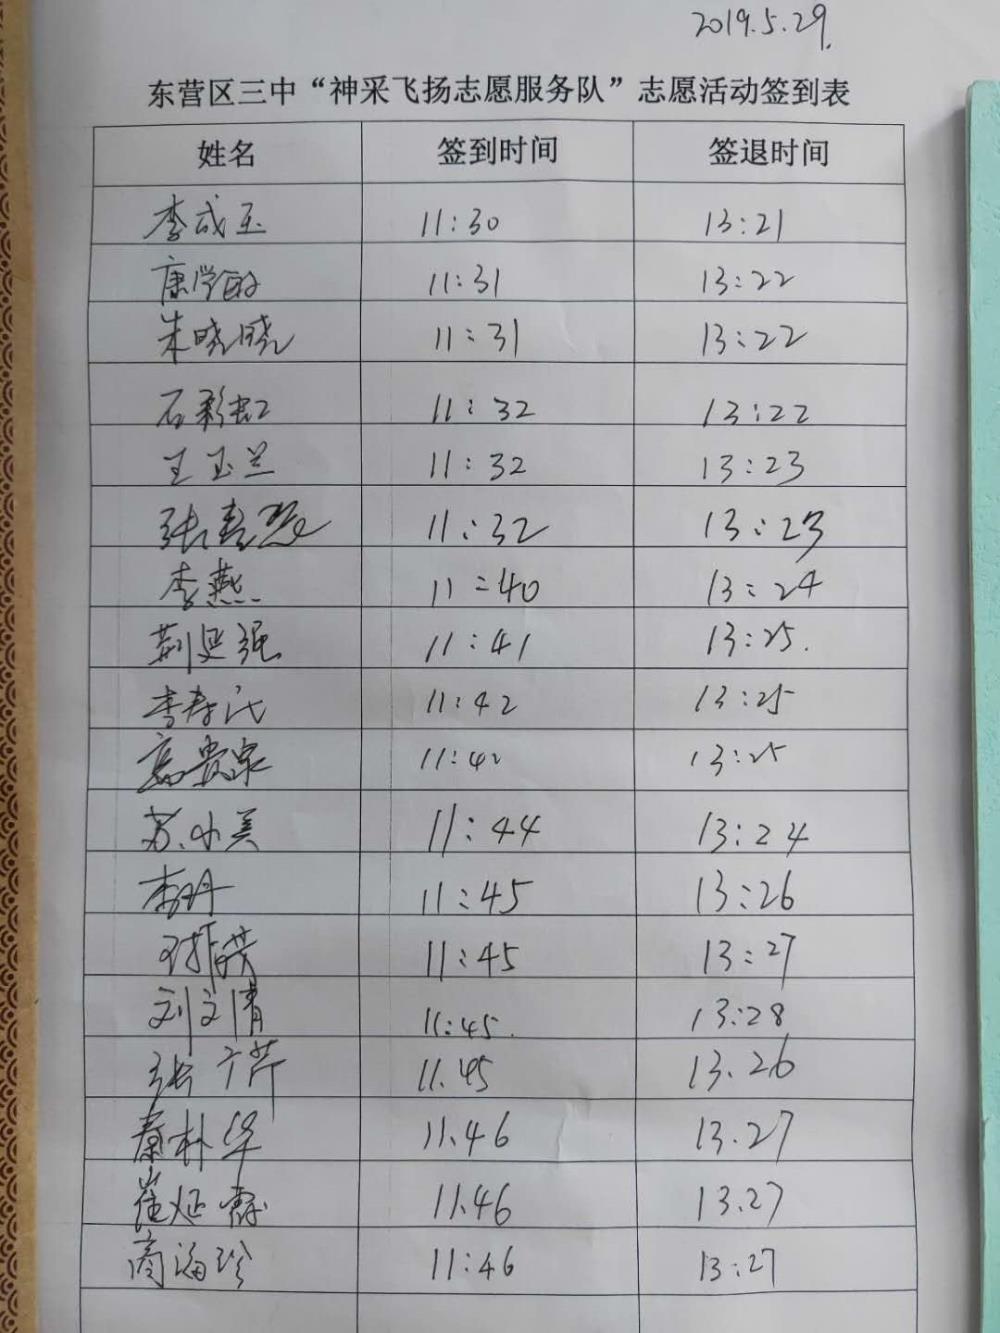 2019.5.29.
东营区三中“神采飞扬志愿服务队”志愿活动签到表
姓名 签到时间 签退时间
李成玉 11:30 13:21
康学 11:31 13:22
朱晓晓 11:31 13:22
石彩虹 11:32 13:22
王玉兰 11:32 13:23
张春 11:32 13:23
李燕 11:40 13:24
荆延强 11:41 13:25.
李春 11:42 13:25
高贵泉 11:42 13:25
苏小美 11:44 13:24
李丹 11:45 13:26
11:45 13:27
刘文清 11:45. 13:28
张广芹 11.45 13.26
秦朴华 11.46 13.27
崔延霞 11.46 13.27
商海珍 11:46 13:27